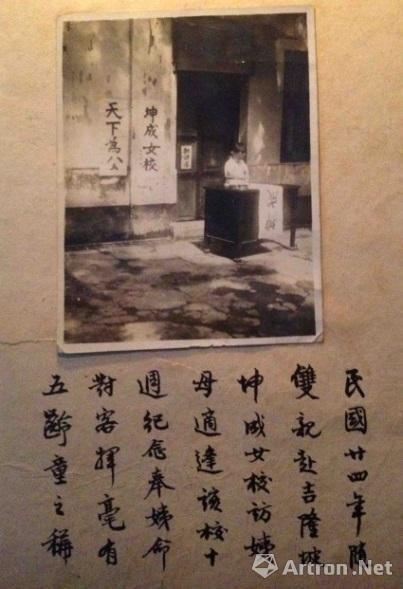 坤成女校
天下為公
民國廿四年隨
雙親赴吉隆坡
坤成女校訪姨
母適達該校十
週紀念奉姨命
對客揮毫有
五齡童之稱
Artron.Net